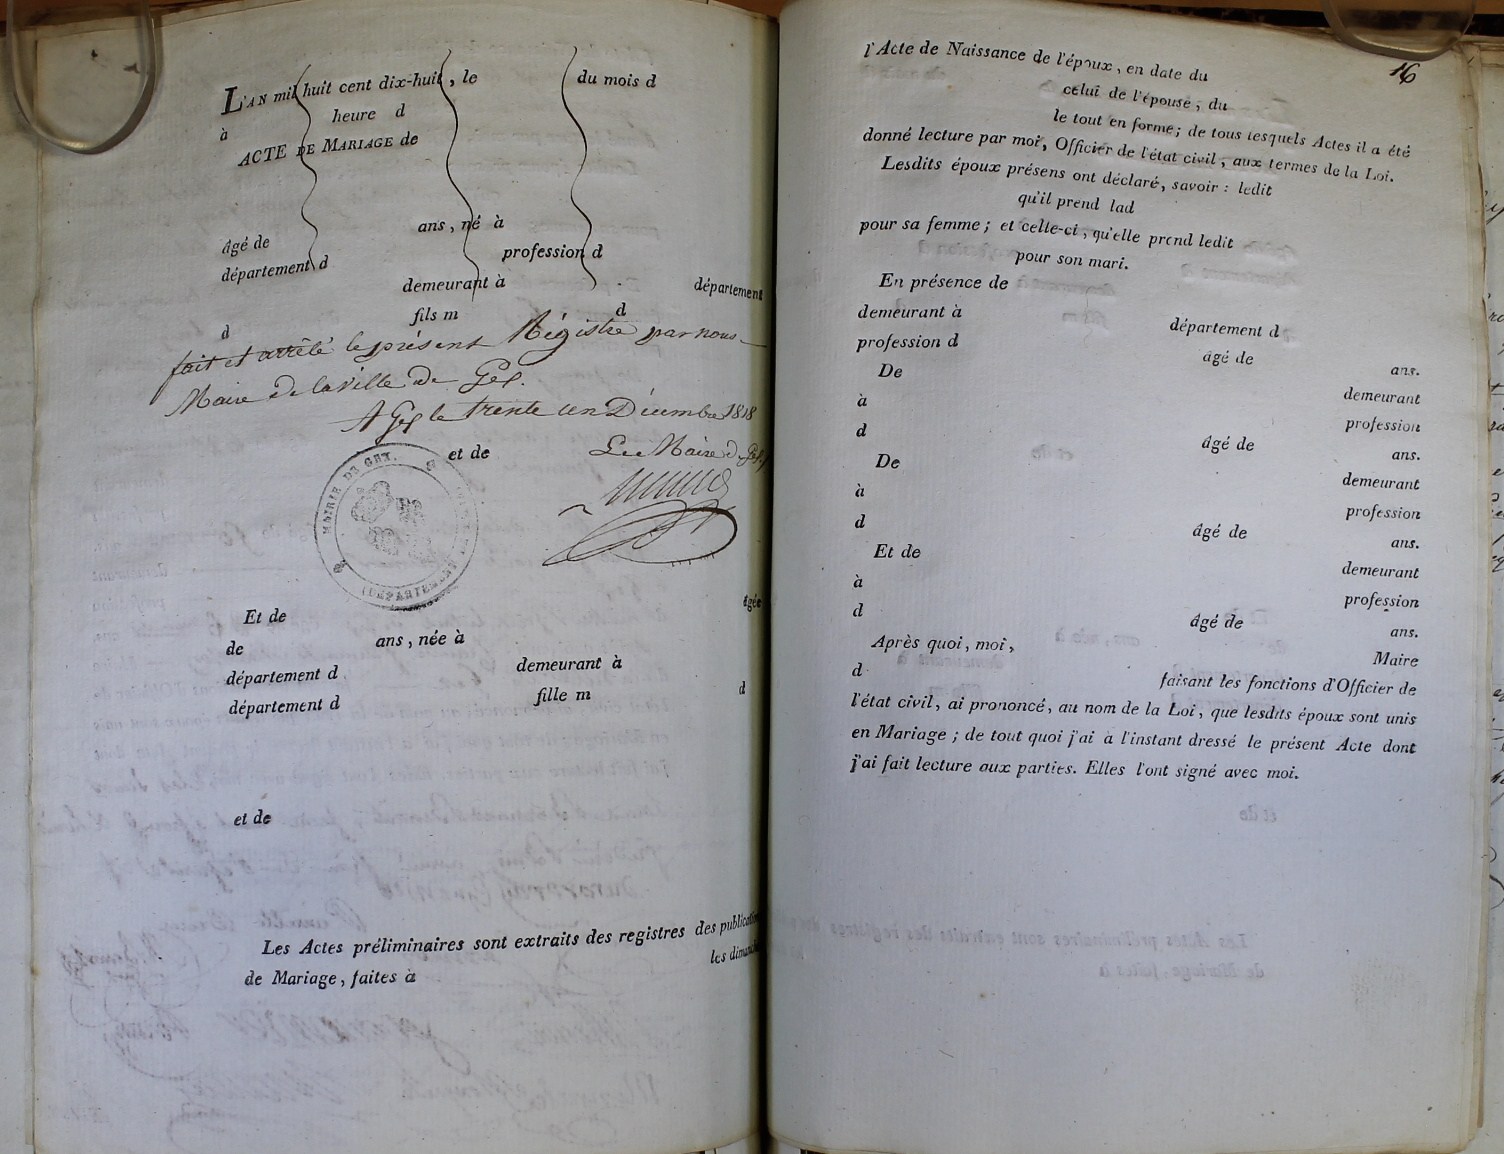 L'AN mil huit cent dix-huit, le du mois d
à heure d
ACTE DE MARIAGE de
âgé de ans, né à
département d profession d
demeurant à département
d fils m d
fait et arrêté le présent Régistre par nous
Maire de la ville de Gex.
A Gex le trente un Décembre 1818
et de Le Maire de Gex
MAIRIE DE GEX.
(DÉPARTEMENT
Et de âgée
de ans, née à
département d demeurant à
département d fille m d
et de
Les Actes préliminaires sont extraits des registres des publication
de Mariage, faites à les dimanch
16
l'Acte de Naissance de l'époux, en date du
celui de l'épouse, du
le tout en forme; de tous lesquels Actes il a été
donné lecture par moi, Officier de l'état civil, aux termes de la Loi.
Lesdits époux présens ont déclaré, savoir : ledit
qu'il prend lad
pour sa femme; et celle-ci, qu'elle prend ledit
pour son mari.
En présence de
demeurant à département d
profession d âgé de ans.
De demeurant
à profession
d âgé de ans.
De demeurant
à profession
d âgé de ans.
Et de demeurant
à profession
d âgé de ans.
Après quoi, moi, Maire
d faisant les fonctions d'Officier de
l'état civil, ai prononcé, au nom de la Loi, que lesdits époux sont unis
en Mariage; de tout quoi j'ai à l'instant dressé le présent Acte dont
j'ai fait lecture aux parties. Elles l'ont signé avec moi.